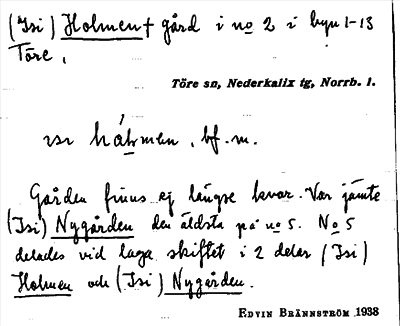 (Isi) Holmen † gård i no 2 i byn 1-13
Töre,
Töre sn, Nederkalix tg, Norrb. l.
ısı hólmen, bf. m.
Gården finns ej längre kvar. Var jämte
(Isi) Nygården den äldsta på no 5. No 5
delades vid laga skiftet i 2 delar (Isi)
Holmen och (Isi) Nygården.
EDVIN BRÄNNSTRÖM 1938